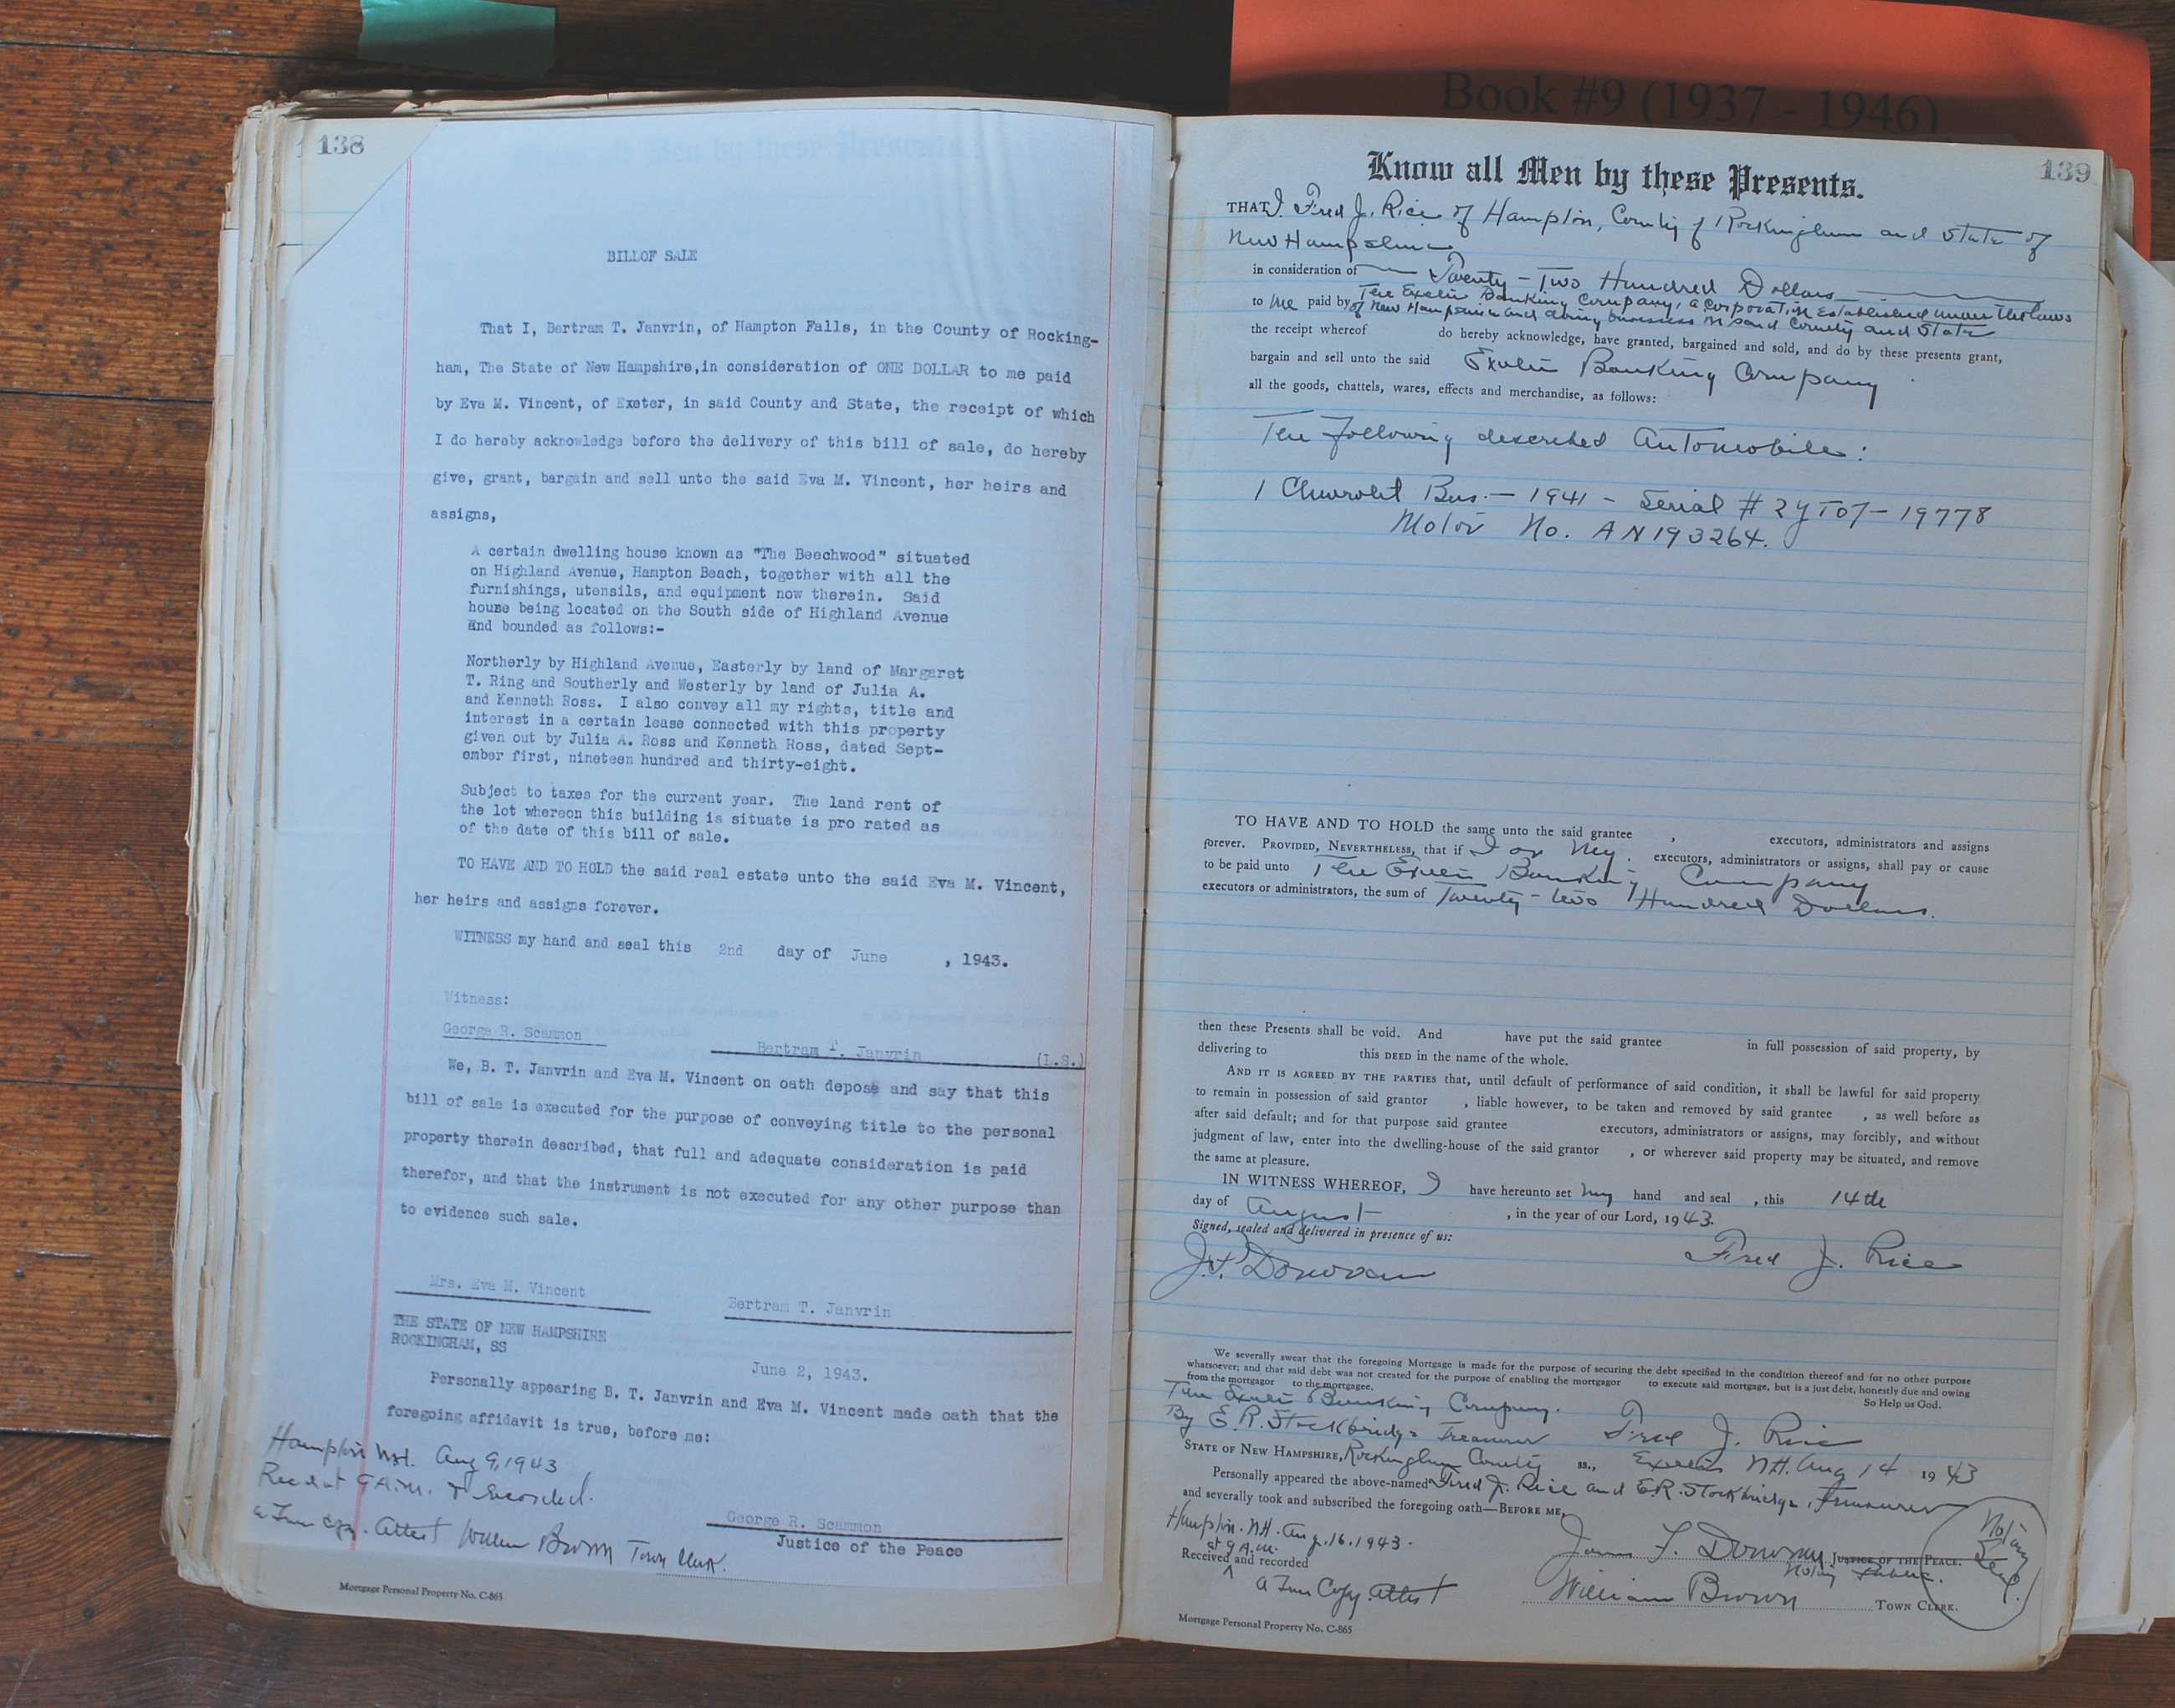 Book #9 (1937 - 1946)
138
BILLOF SALE
That I, Bertram T. Janvrin, of Hampton Falls, in the County of Rocking-
ham, The State of New Hampshire,in consideration of ONE DOLLAR to me paid
by Eva M. Vincent, of Exeter, in said County and State, the receipt of which
I do hereby acknowledge before the delivery of this bill of sale, do hereby
give, grant, bargain and sell unto the said Eva M. Vincent, her heirs and
assigns,
A certain dwelling house known as "The Beechwood" situated
on Highland Avenue, Hampton Beach, together with all the
furnishings, utensils, and equipment now therein. Said
house being located on the South side of Highland Avenue
and bounded as follows:-
Northerly by Highland Avenue, Easterly by land of Margaret
T. Ring and Southerly and Westerly by land of Julia A.
and Kenneth Ross. I also convey all my rights, title and
interest in a certain lease connected with this property
given out by Julia A. Ross and Kenneth Ross, dated Sept-
ember first, nineteen hundred and thirty-eight.
Subject to taxes for the current year. The land rent of
the lot whereon this building is situate is pro rated as
of the date of this bill of sale.
TO HAVE AND TO HOLD the said real estate unto the said Eva M. Vincent,
her heirs and assigns forever.
WITNESS my hand and seal this 2nd day of June , 1943.
Witness:
George R. Scammon
Bertram T. Janvrin (L.S.)
We, B. T. Janvrin and Eva M. Vincent on oath depose and say that this
bill of sale is executed for the purpose of conveying title to the personal
property therein described, that full and adequate consideration is paid
therefor, and that the instrument is not executed for any other purpose than
to evidence such sale.
Mrs. Eva M. Vincent
Bertram T. Janvrin
THE STATE OF NEW HAMPSHIRE
ROCKINGHAM, SS
June 2, 1943.
Personally appearing B. T. Janvrin and Eva M. Vincent made oath that the
foregoing affidavit is true, before me:
Hampton N.H. Aug 9, 1943
Rec'd at 9 A.M. & Recorded.
a True Copy. Attest William Brown Town Clerk.
George R. Scammon
Justice of the Peace
Mortgage Personal Property No. C-865
139
Know all Men by these Presents.
THAT I, Fred J. Rice of Hampton, County of Rockingham and State of
New Hampshire
in consideration of Twenty-Two Hundred Dollars
to me paid by The Exeter Banking Company, a Corporation Established under the laws
of New Hampshire and doing business in said County and State
the receipt whereof do hereby acknowledge, have granted, bargained and sold, and do by these presents grant,
bargain and sell unto the said Exeter Banking Company
all the goods, chattels, wares, effects and merchandise, as follows:
The following described Automobile:
1 Chevrolet Bus. - 1941 - Serial # 2YT07-19778
Motor No. AN193264.
TO HAVE AND TO HOLD the same unto the said grantee , executors, administrators and assigns
forever. PROVIDED, NEVERTHELESS, that if I or My. executors, administrators or assigns, shall pay or cause
to be paid unto The Exeter Banking Company
executors or administrators, the sum of Twenty-two Hundred Dollars.
then these Presents shall be void. And have put the said grantee in full possession of said property, by
delivering to this DEED in the name of the whole.
AND IT IS AGREED BY THE PARTIES that, until default of performance of said condition, it shall be lawful for said property
to remain in possession of said grantor , liable however, to be taken and removed by said grantee , as well before as
after said default; and for that purpose said grantee executors, administrators or assigns, may forcibly, and without
judgment of law, enter into the dwelling-house of the said grantor , or wherever said property may be situated, and remove
the same at pleasure.
IN WITNESS WHEREOF, I have hereunto set my hand and seal , this 14th
day of August , in the year of our Lord, 1943.
Signed, sealed and delivered in presence of us:
J.F. Donovan Fred J. Rice
We severally swear that the foregoing Mortgage is made for the purpose of securing the debt specified in the condition thereof and for no other purpose
whatsoever; and that said debt was not created for the purpose of enabling the mortgagor to execute said mortgage, but is a just debt, honestly due and owing
from the mortgagor to the mortgagee. So Help us God.
The Exeter Banking Company.
By E.R. Stockbridge Treasurer Fred J. Rice
STATE OF NEW HAMPSHIRE, Rockingham County ss., Exeter N.H. Aug 14 1943
Personally appeared the above-named Fred J. Rice and E.R. Stockbridge, Treasurer
and severally took and subscribed the foregoing oath—BEFORE ME,
Hampton. N.H. Aug. 16. 1943.
at 9 A.M.
Received and recorded
a True Copy. Attest
James F. Donovan JUSTICE OF THE PEACE.
Notary Public.
William Brown TOWN CLERK.
Notary
Seal.
Mortgage Personal Property No. C-865